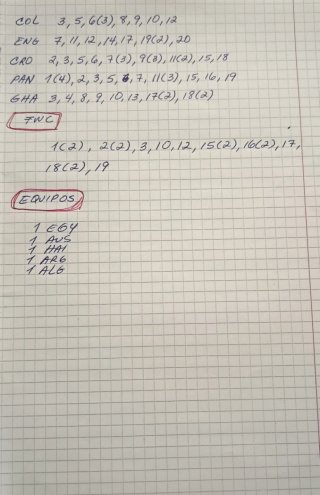 COL 3, 5, 6(3), 8, 9, 10, 12
ENG 7, 11, 12, 14, 17, 19(2), 20
CRO 2, 3, 5, 6, 7(3), 9(3), 11(2), 15, 18
PAN 1(4), 2, 3, 5, 7, 11(3), 15, 16, 19
GHA 3, 4, 8, 9, 10, 13, 17(2), 18(2)
FWC
1(2), 2(2), 3, 10, 12, 15(2), 16(2), 17,
18(2), 19
EQUIPOS
1 EGY
1 AUS
1 HAI
1 ARG
1 ALG